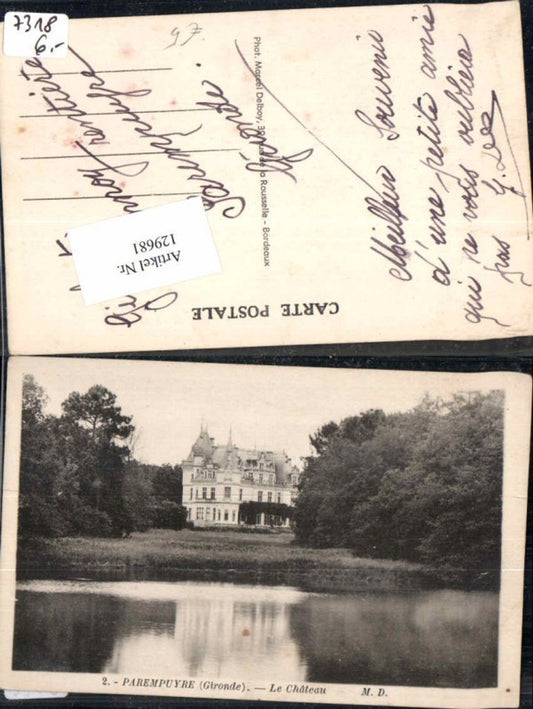 7318
6.-
97.
Meilleur Souvenir
d'une petite amie
qui ne vous oubliera
pas
CARTE POSTALE
Phot. Marcel Delboy, Rousselle - Bordeaux
rentière
Parempuyre
Gironde.
Artikel Nr.
129681
2. - PAREMPUYRE (Gironde). — Le Château M. D.